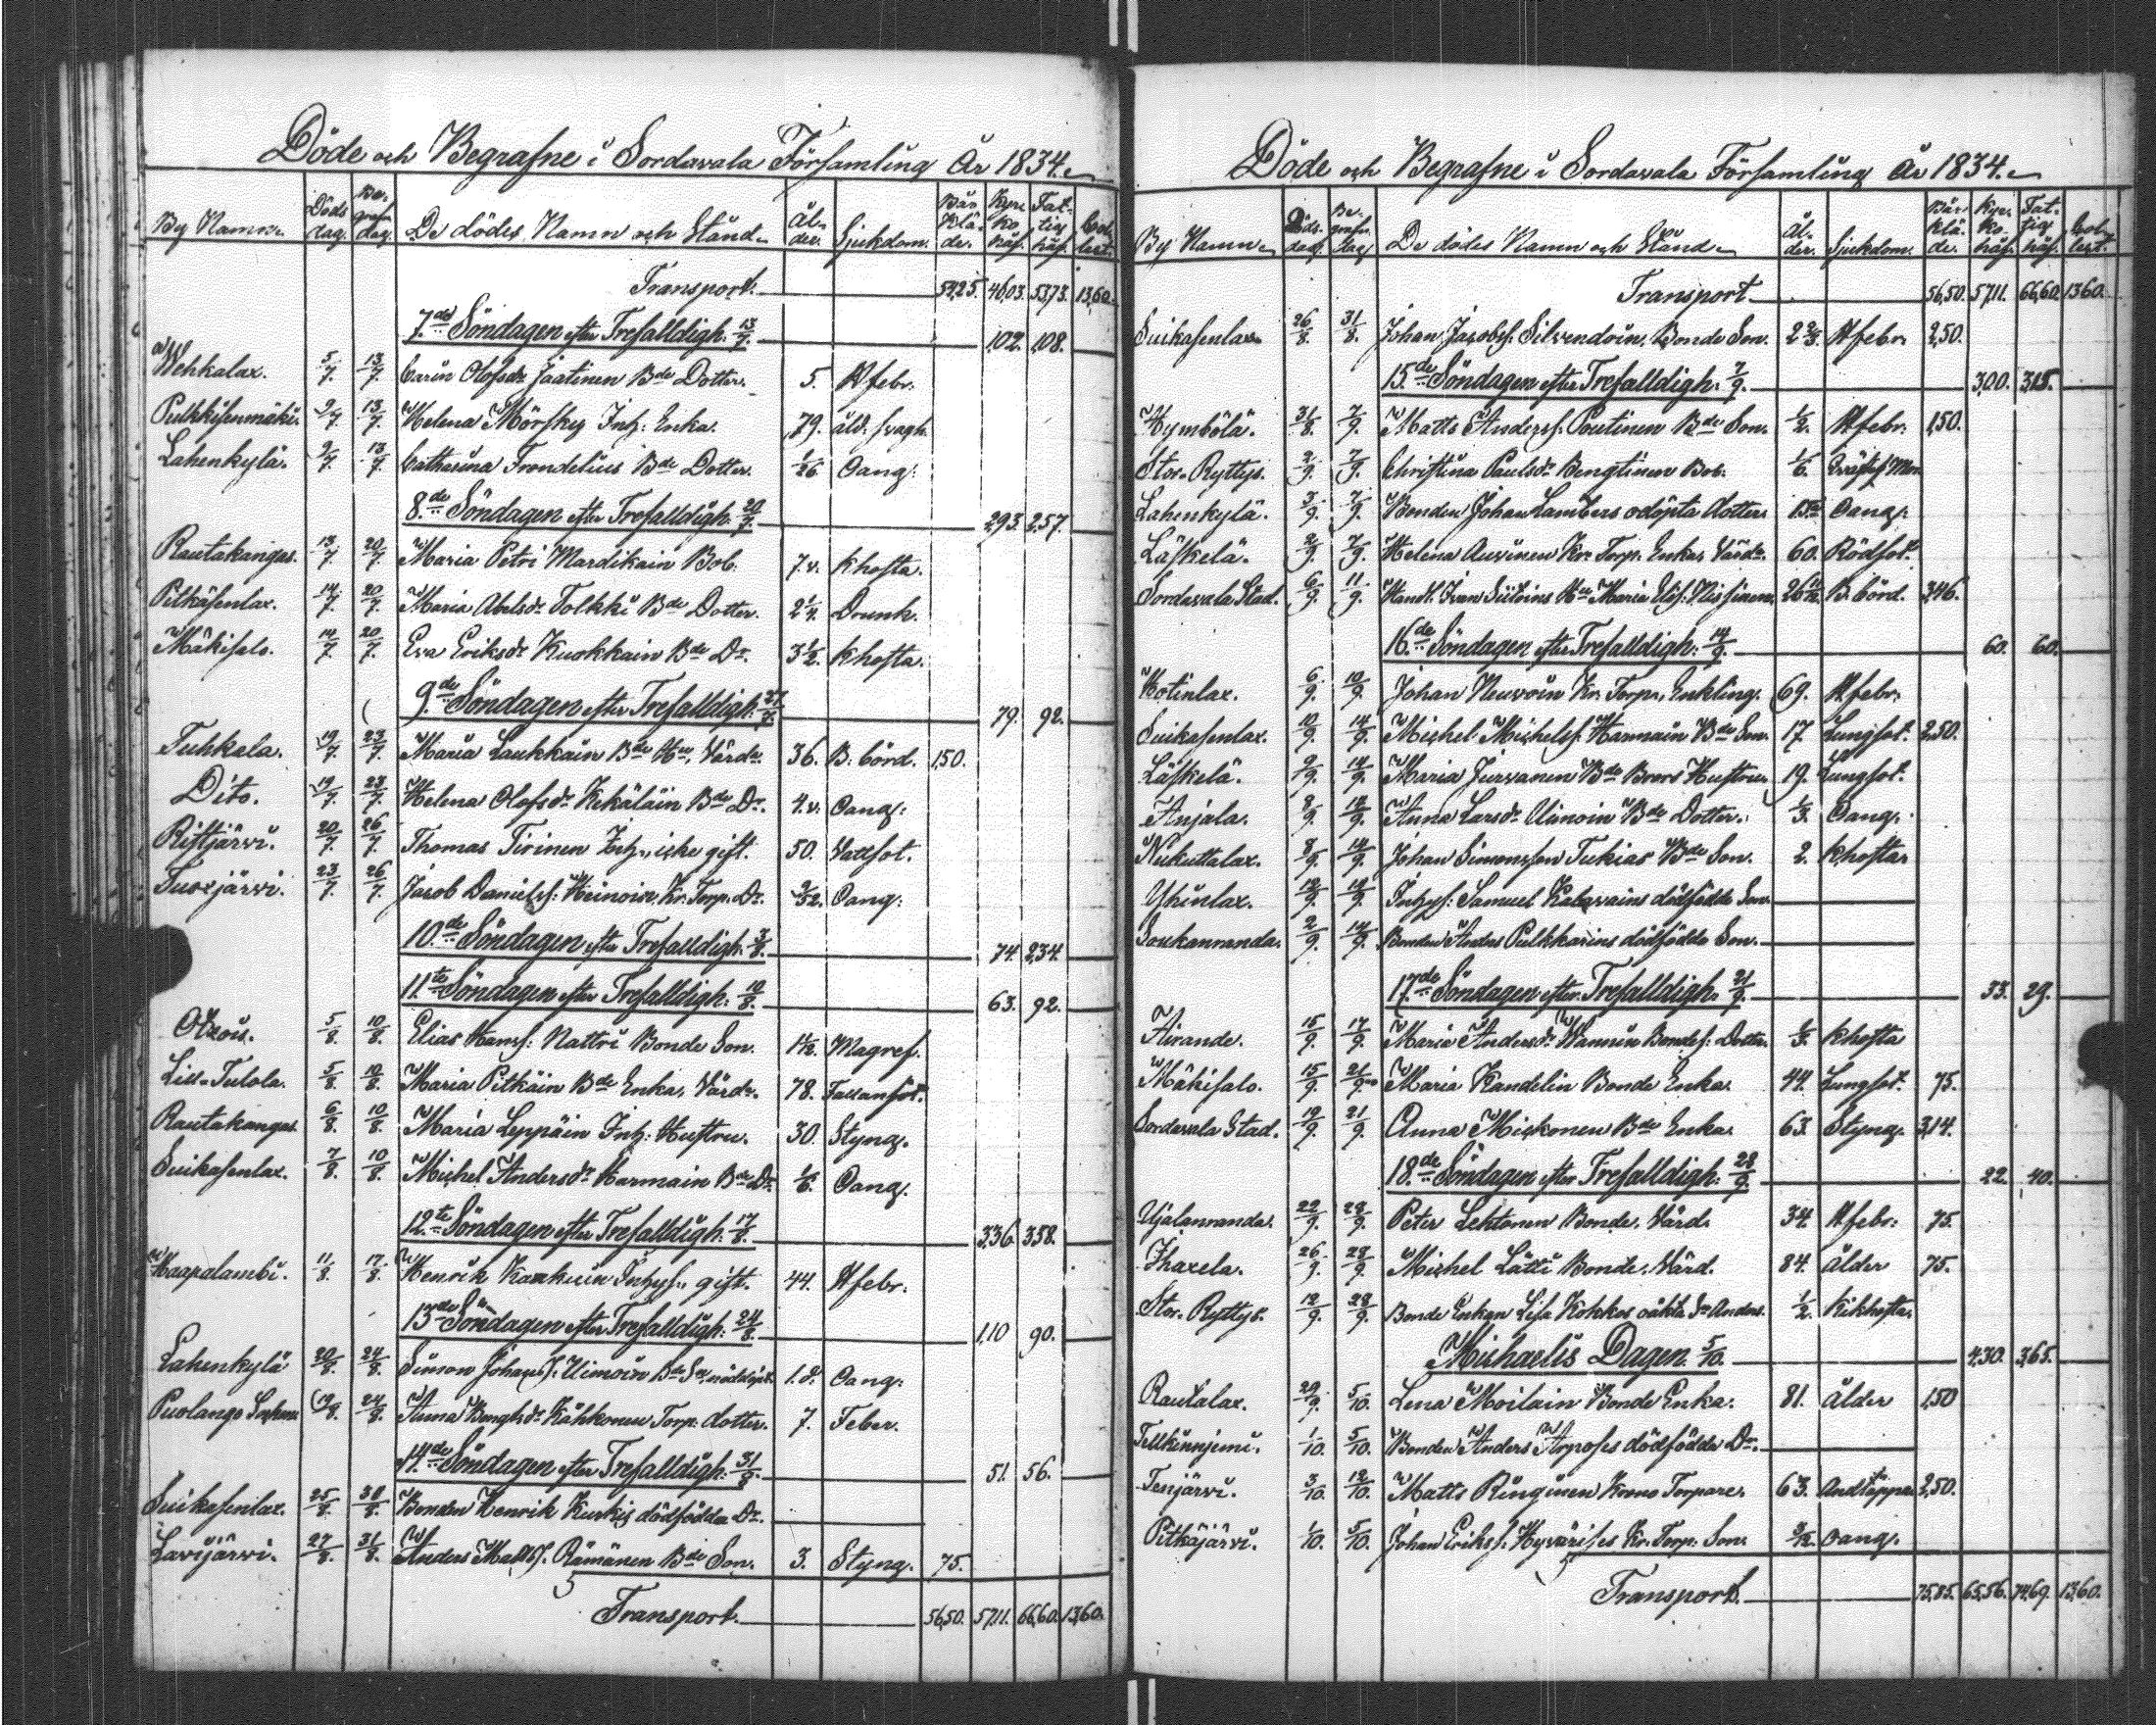 Döde och Begrafne i Sordavala Församling År 1834.
By Namn. Döds dag. Begrafn. dag. De dödes Namn och Stånd. Ålder. Sjukdom. Bår Kläde. Kyrkokas. Fattigkas. Collect.
Transport. 54,25. 46,03. 53,73. 13,60.
7de Söndagen efter Trefalldigh: 13/7. 1,02. 1,08.
Wehkalax. 5/7. 13/7 Carin Olofsdr Jaatinen Bde Dotter. 5. Hfebr.
Pulkkisenmäki. 9/7 13/7. Helena Mörsky Inh: Enka. 79. åld. svagh.
Lahenkylä. 9/7 13/7 Catharina Frondelius Bde Dotter. 1/26 Oang:
8de Söndagen efter Trefalldigh: 20/7. 2,93. 2,57.
Rautakangas. 13/7 20/7. Maria Petri Mardikain Bob. 7.v. Khosta.
Pitkäsenlax. 14/7. 20/7. Maria Abelsdr Tolkki Bde Dotter. 2 1/4. Drunk.
Mäkisalo. 14/7. 20/7. Eva Eriksdr Kuokkain Bde Dr. 3 1/2. Khosta.
9de Söndagen efter Trefalldigh: 27/7. 79. 92.
Tuhkala. 19/7 23/7. Maria Laukkain Bde Hu, Värdr. 36. B. börd. 1,50.
Dito. 19/7. 23/7. Helena Olofsdr Kekäläin Bde Dr. 4.v. Oang:
Ristjärvi. 20/7. 26/7 Thomas Tirinen Inh., icke gift. 50. Vattsot.
Tuoxjärvi. 23/7. 26/7. Jacob Danielss: Heinoin Kr. Torp. Dr. Oang:
10de Söndagen efter Trefalldigh: 3/8. 74. 2,34.
11te Söndagen efter Trefalldigh: 10/8. 63. 92.
Otsois. 5/8. 10/8. Elias Hanss: Nattri Bonde Son. Magref.
Lill-Tulola. 5/8 10/8. Maria Pitkäin Bde Enka, Värdr. 78.
Rautakangas. 6/8. 10/8. Maria Leppäin Inh: Hustru. 30. Styng.
Suikasenlax. 7/8. 10/8. Michel Andersdr Harmain Bde Dr. 1/6. Oang.
12te Söndagen efter Trefalldigh: 17/8. 3,36. 3,58.
Haapalambi. 11/8. 17/8. Henrik Karkuin Inhys., gift. 44. Hfebr.
13de Söndagen efter Trefalldigh: 24/8. 1,10 90.
Lahenkylä 20/8. 24/8. Simon Johans. Uimoin Bde Son, nöddöpt. 1.d. Oang:
Puolango Socken 19/8. 24/8. Anna Bengtsdr Kähkonen Torp. dotter. 7. Feber.
14de Söndagen efter Trefalldigh: 31/8. 51. 56.
Suikasenlax. 25/8. 31/8. Bonden Henrik Kurkis dödfödda Dr.
Lavijärvi. 27/8. 31/8. Anders Matts. Rämänen Bde Son. 3. Styng. 75.
Transport. 56,50. 57,11. 66,60. 13,60.
Döde och Begrafne i Sordavala Församling År 1834.
By Namn. Döds dag. Begrafn. dag De dödes Namn och Stånd. Ålder. Sjukdom. Bår kläde. Kyrkokas. Fattigkas. Collect.
Transport 56,50. 57,11. 66,60. 13,60.
Suikasenlax 26/8. 31/8. Johan Jacobss. Silvendoin, Bonde Son. 2 2/3. Hfebr. 2,50.
15de Söndagen efter Trefalldigh: 7/9. 3,00. 3,15.
Hymbölä. 31/8. 7/9. Matts Anderss. Poutinen Bde Son. 1/2. Hfebr. 1,50.
Stor-Ryttys. 2/9. 7/9. Christina Paulsdr Bengtinen Bob. 1/6.
Lahenkylä. 3/9. 7/9. Bonden Johan Lambers odöpta dotter. Oang:
Läskelä. 2/9. 7/9. Helena Auvinen Kr. Torp. Enka, Värdr. 60. Rödsot.
Sordavala Stad. 6/9. 11/9. Handl. Ivan Siitoins Hu Maria Elis. Nissinen. B. börd. 3,46.
16de Söndagen efter Trefalldigh: 14/9. 60. 60.
Kotinlax. 6/9. 10/9. Johan Neuvoin Kr. Torp., Enkling. 69. Hfebr.
Suikasenlax. 10/9. 14/9. Michel Michelss. Harmain Bde Son. 17. Lungsot. 2,50.
Läskelä. 9/9. 14/9. Maria Jurvanen Bde Brors Hustru. 19. Lungsot.
Anjala. 8/9. 14/9. Anna Larsdr Uimoin Bde Dotter. 1/3. Oang.
Nukuttalax. 8/9. 14/9. Johan Simonsson Tukias Bde Son. 2. Khosta
Yhinlax. Inhys: Samuel Kalavains dödfödde Son.
Soukanranda. 2/9. 14/9. Bonden Anders Pulkkarins dödfödda Son.
17de Söndagen efter Trefalldigh: 21/9. 33. 29.
Airande. 15/9. 17/9. Maria Andersdr Wannin Bondes: Dotter. 1/3. Khosta
Mäkisalo. 15/9. 21/9. Maria Kandelin Bonde Enka. 44. Lungsot. 75.
Sordavala Stad. 19/9. 21/9. Anna Mickonen Bde Enka. 63. Styng. 3,14.
18de Söndagen efter Trefalldigh: 28/9. 22. 40.
Ujalanranda. 22/9. 28/9. Peter Lehtonen Bonde. Värd. 34. Hfebr. 75.
Ihaxela. 26/9. 28/9. Michel Lätti Bonde. Värd. 84. Ålder 75.
Stor-Ryttys. 12/9. 28/9. Bonde Enkan Lisa Kokkos oäkta Sn Anders. 1/2. Kikhosta.
Michaelis Dagen 5/10. 4,30. 3,65.
Rautalax. 29/9. 5/10. Lena Moilain Bonde Enka. 81. Ålder 1,50
Telkinnjemi. 1/10. 5/10. Bonden Anders Arposes dödfödda Dr.
Tenjärvi. 3/10. 12/10. Matts Ringinen Krono Torpare. 63. Andtäppa 2,50.
Pitkäjärvi. 1/10. 5/10. Johan Erikss. Hyvärises Kr. Torp. Son. Oang.
Transport. 75,85. 65,56. 74,69. 13,60.